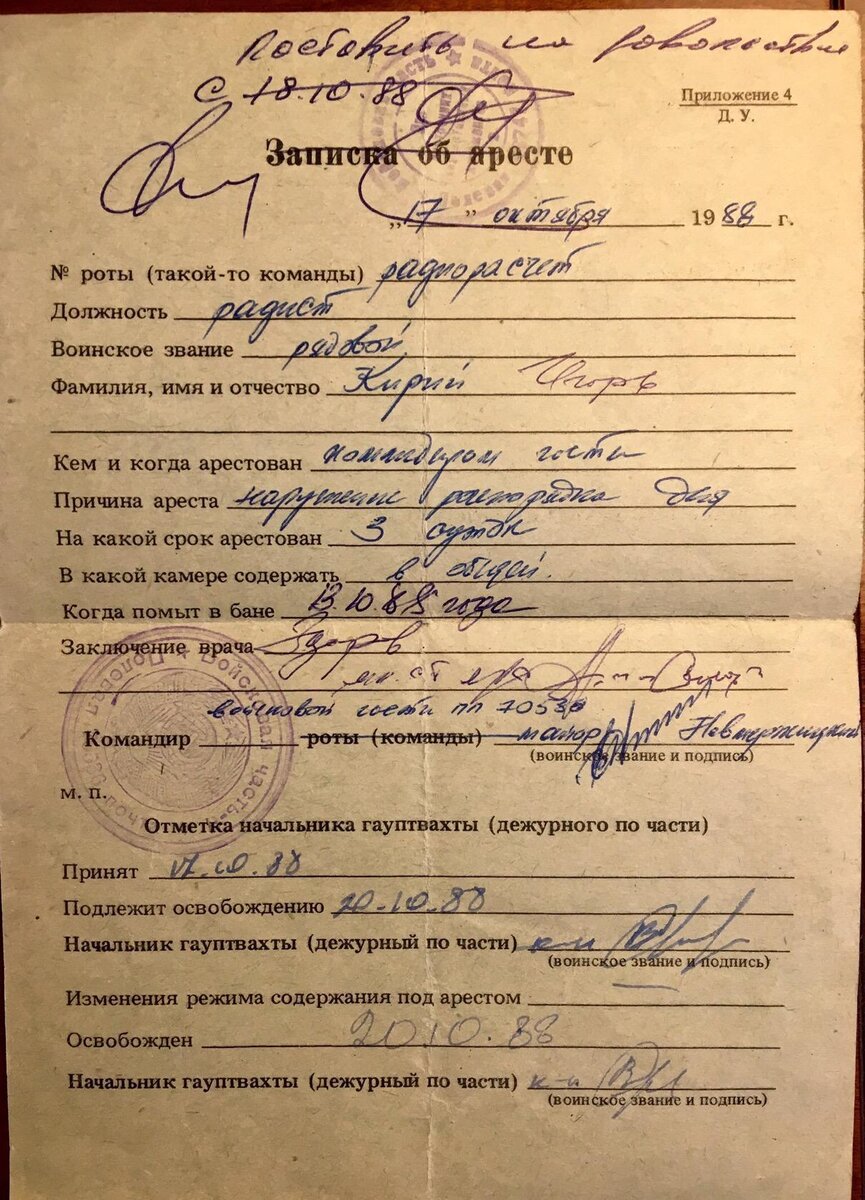 Поставить на довольствие
с 18.10.88
Приложение 4
Д. У.
Записка об аресте
„17" октября 1988 г.
№ роты (такой-то команды) радиорасчет
Должность радист
Воинское звание рядовой
Фамилия, имя и отчество Кирий Игорь
Кем и когда арестован командиром части
Причина ареста нарушение распорядка дня
На какой срок арестован 3 суток
В какой камере содержать в общей.
Когда помыт в бане 13.10.88 года
Заключение врача Здоров
войсковой части пп 70538
Командир роты (команды) майор
(воинское звание и подпись)
м. п.
Отметка начальника гауптвахты (дежурного по части)
Принят 17.10.88
Подлежит освобождению 20.10.88
Начальник гауптвахты (дежурный по части) к-н
(воинское звание и подпись)
Изменения режима содержания под арестом
Освобожден 20.10.88
Начальник гауптвахты (дежурный по части) к-н
(воинское звание и подпись)